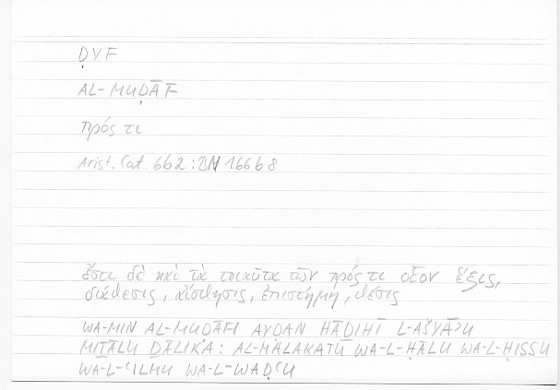 ḌYF
AL-MUḌĀF
πρός τι
Arist. Cat. 6b2 : BN 166b8
ἔστι δὲ καὶ τὰ τοιαῦτα τῶν πρός τι οἷον ἕξις,
διάθεσις, αἴσθησις, ἐπιστήμη, θέσις
WA-MIN AL-MUḌĀFI AYḌAN HĀḎIHĪ L-AŠYĀʾU
MIṮĀLU ḎĀLIKA: AL-MALAKATU WA-L-ḤĀLU WA-L-ḤISSU
WA-L-ʿILMU WA-L-WAḌʿU